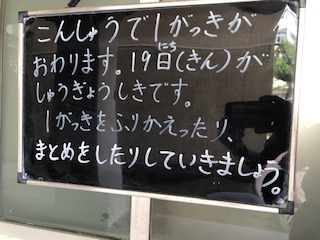 こんしゅうで1がっきが
おわります。19日(きん)が
にち
しゅうぎょうしきです。
1がっきをふりかえったり、
まとめをしたりしていきましょう。